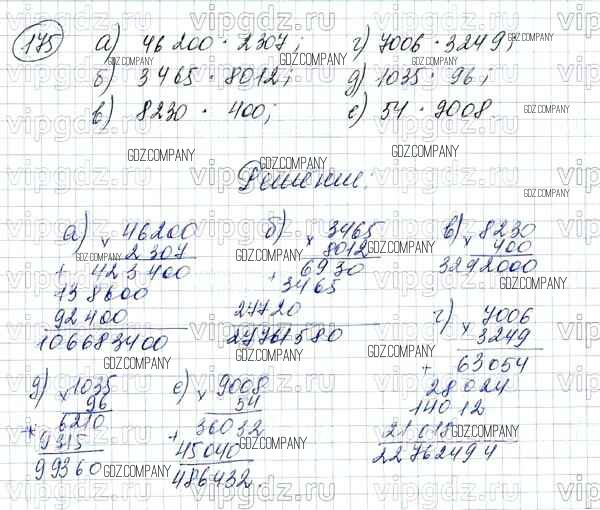 175
а) 46 200 · 2307; г) 7006 · 3249;
б) 3465 · 8012; д) 1035 · 96;
в) 8230 · 400; е) 54 · 9008.
Решение:
а) × 46200
2307
+ 423400
138600
92400
106683400
б) × 3465
8012
+ 6930
3465
27720
27761580
в) × 8230
400
3292000
г) × 7006
3249
+ 63054
28024
14012
21018
22762494
д) × 1035
96
+ 6210
9315
99360
е) × 9008
54
+ 36032
45040
486432.
vipgdz.ru
GDZ.COMPANY